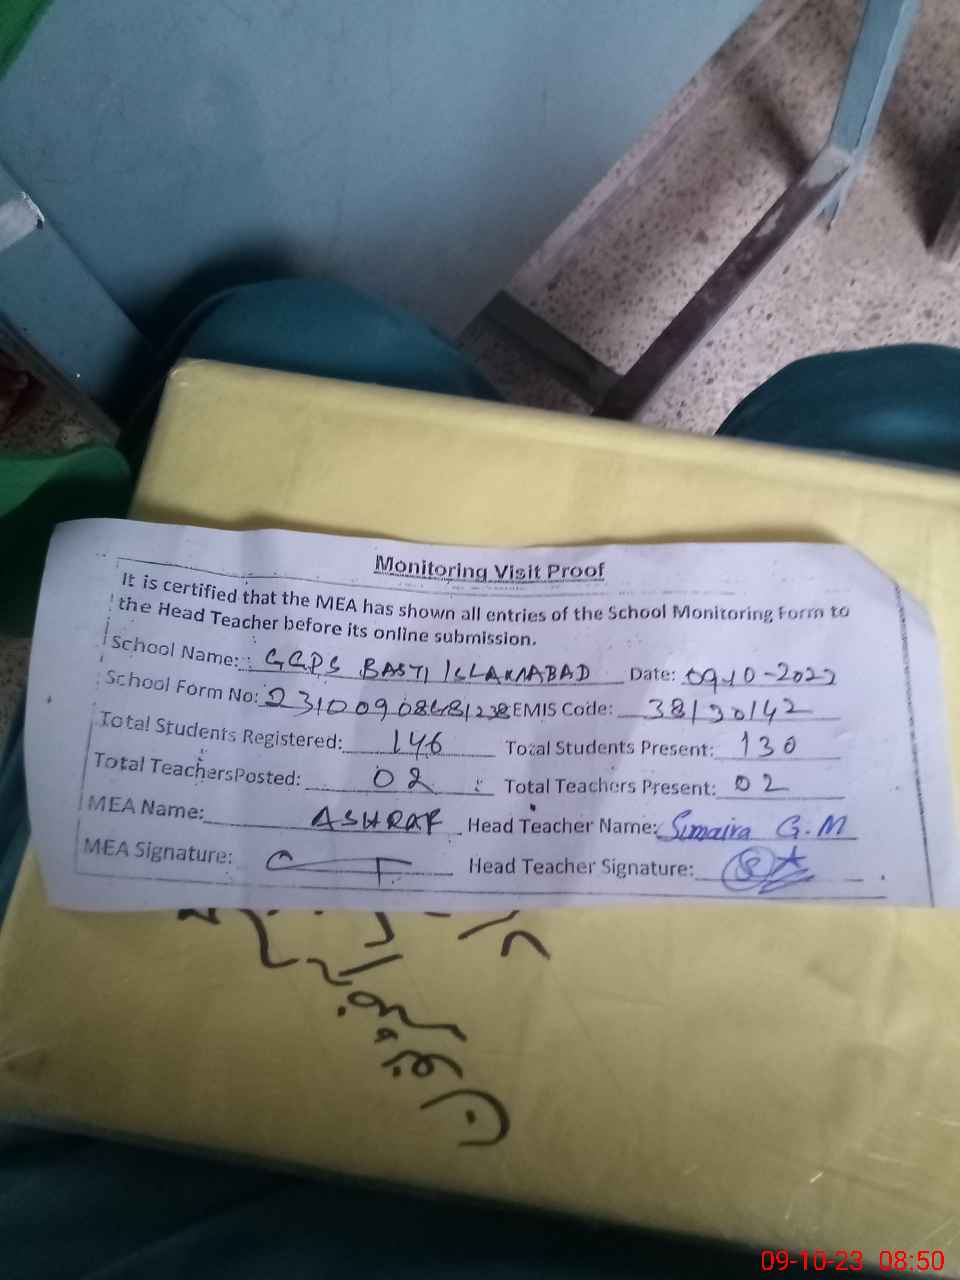 Monitoring Visit Proof
It is certified that the MEA has shown all entries of the School Monitoring Form to
the Head Teacher before its online submission.
School Name: GGPS BASTI ISLAMABAD Date: 09-10-2023
School Form No: EMIS Code: 38130142
Total Students Registered: 146 Total Students Present: 130
Total TeachersPosted: 02 Total Teachers Present: 02
MEA Name: ASHRAF Head Teacher Name: Sumaira G.M
MEA Signature: Head Teacher Signature:
09-10-23 08:50